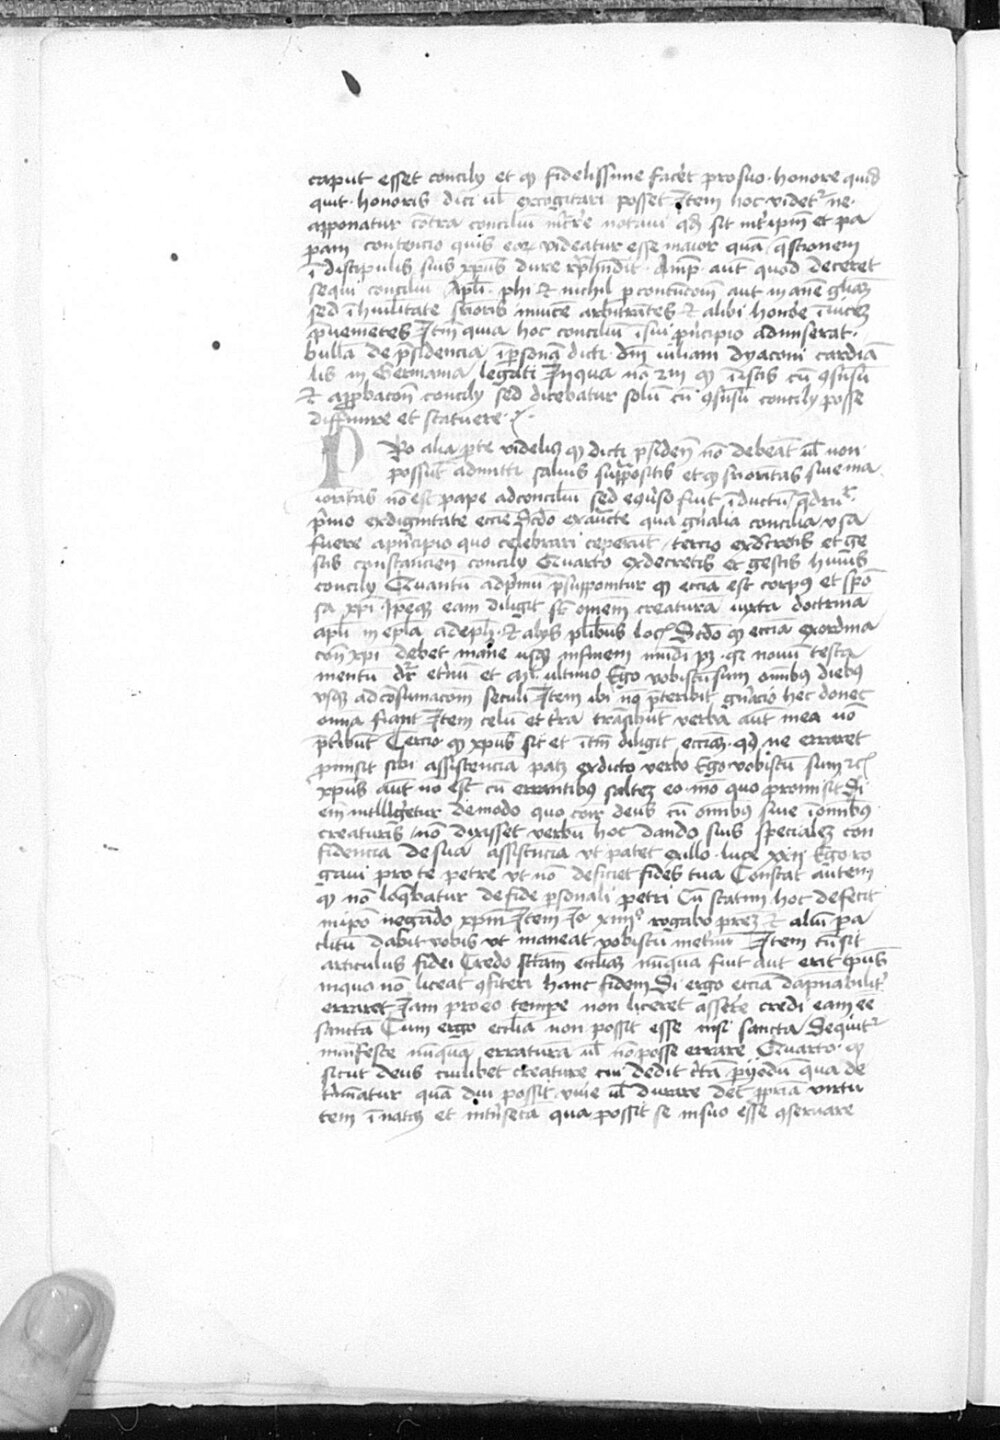 caput esset concilij et qͥ fidelissime facēt pro suo honore quid
quit honoris dici ul̄ excogitari posset Item hoc videtᷣ ne
apponatur cōtra conciliū notaui qd̄ sit int̄ ipm̄ et pa
pam contencio quis eoꝝ videatur esse maior quā q̄stionem
ī discipulis suis xp̄us dure rep̄hendit aut quod deceret
sequi conciliū Apl̄i phi et nichil p contēcōem aut inanē gl̄iaꝫ
sed ī humilitate arbitrātes et alibi honōe īuiceꝫ
p̄uenietes Itm̄ quia hoc conciliū ī sui p̄ncipio admiserat
bullā de p̄sidencia ī p̄sonā dicti dn̄i iuliani dyaconi cardiā
lis in Germania legati In qua nō qͥ cū ꝯsēsu
et app̄bacōne concilij sed dicebatur solū cū ꝯsēsu concilij posse
diffinire et statuere
PRo alia p̄te videliꝫ qͥ dicti p̄siden̄ nō debeāt ul̄ non
possūt admitti saluis supp̄ositis et qͥ suꝑioritas siue ma
ioritas nō est pape ad conciliū sed eꝯūso fuit īductū q̄drut̄
p̄mo ex dignitate eccīe Scd̄o ex auctē qua gn̄alia concilia usa
fuere a p̄ncipio quo celebrari ceperūt tercio ex decretis et ge
stis constancien̄ concilij Quarto ex decretis et gestis huius
concilij Quantū ad p̄mū p̄supponitur qͥ eccīa est corpus et spō
sa xp̄i Ipeqꝫ eam diligit sr̄ om̄em creaturā iuxta doctrinā
apl̄i in ep̄la ad eph̄ et alijs pl̄ibus locꝭ Scd̄o qͥ eccīa ex ordina
cōe xp̄i debet manē usqꝫ in finem mūdi pꝫ qꝛ nouū testa
mentū dr̄ et̄nū et mͭ ultimo Ego vobiscū sum omībus diebus
usqꝫ ad cōsumacōem seculi Item ibi nō p̄teribit gn̄acio hec donec
om̄ia fiant Item celū et t̄ra trāsibūt verba aut̄ mea nō
p̄t̄ibūt Tercio qͥ xp̄us sic et itm̄ diligit eccīaꝫ qd̄ ne erraret
p̄misit sibi assistenciā patꝫ ex dicto verbo Ego vobiscū sum ꝛcꝭ
xp̄us aut̄ nō est cū errantibus salteꝫ eo mō quo promisit Si
em̄ intlligetur de modo quo coīr deus cū omībus siue ī omībus
creaturis nō dixisset verbū hoc dando suis specialeꝫ con
fidencia de sua assistēcia vt patet ex illo luce xxij Ego ro
gaui pro te petre vt nō deficiet fides tua Constat autem
qͥ nō loq̄batur de fide p̄sonali petri Cū statim hoc defecit
in ip̄o negādo xpm̄ Item Jo xiiij° rogabo pr̄eꝫ et aliū pa
clitū dabit vobis vt maneat vobiscū Item cū sit
articulus fidei Credo sctām eccl̄iaꝫ nūqua fuit aut erit tp̄us
in qua nō liceat ꝯfiteri hanc fidem Si ergo eccīa dāpnabilit̄
erraret Iam pro eo tempe non liceret assēre credi eam eē
sanctā Cum ergo eccl̄ia non possit esse nisi sancta sequitᷣ
manifeste nūquā erraturā ul̄ nō posse errare Quarto qͥ
sicut deus cuilibet creature cui dedit c̄tā p̄iodū qua de
t̄minatur quā diu possit viuē ul̄ durare dēt pp̄riā virtu
tem īnatā et int̄insecā qua possit se in suo esse ꝯseruare